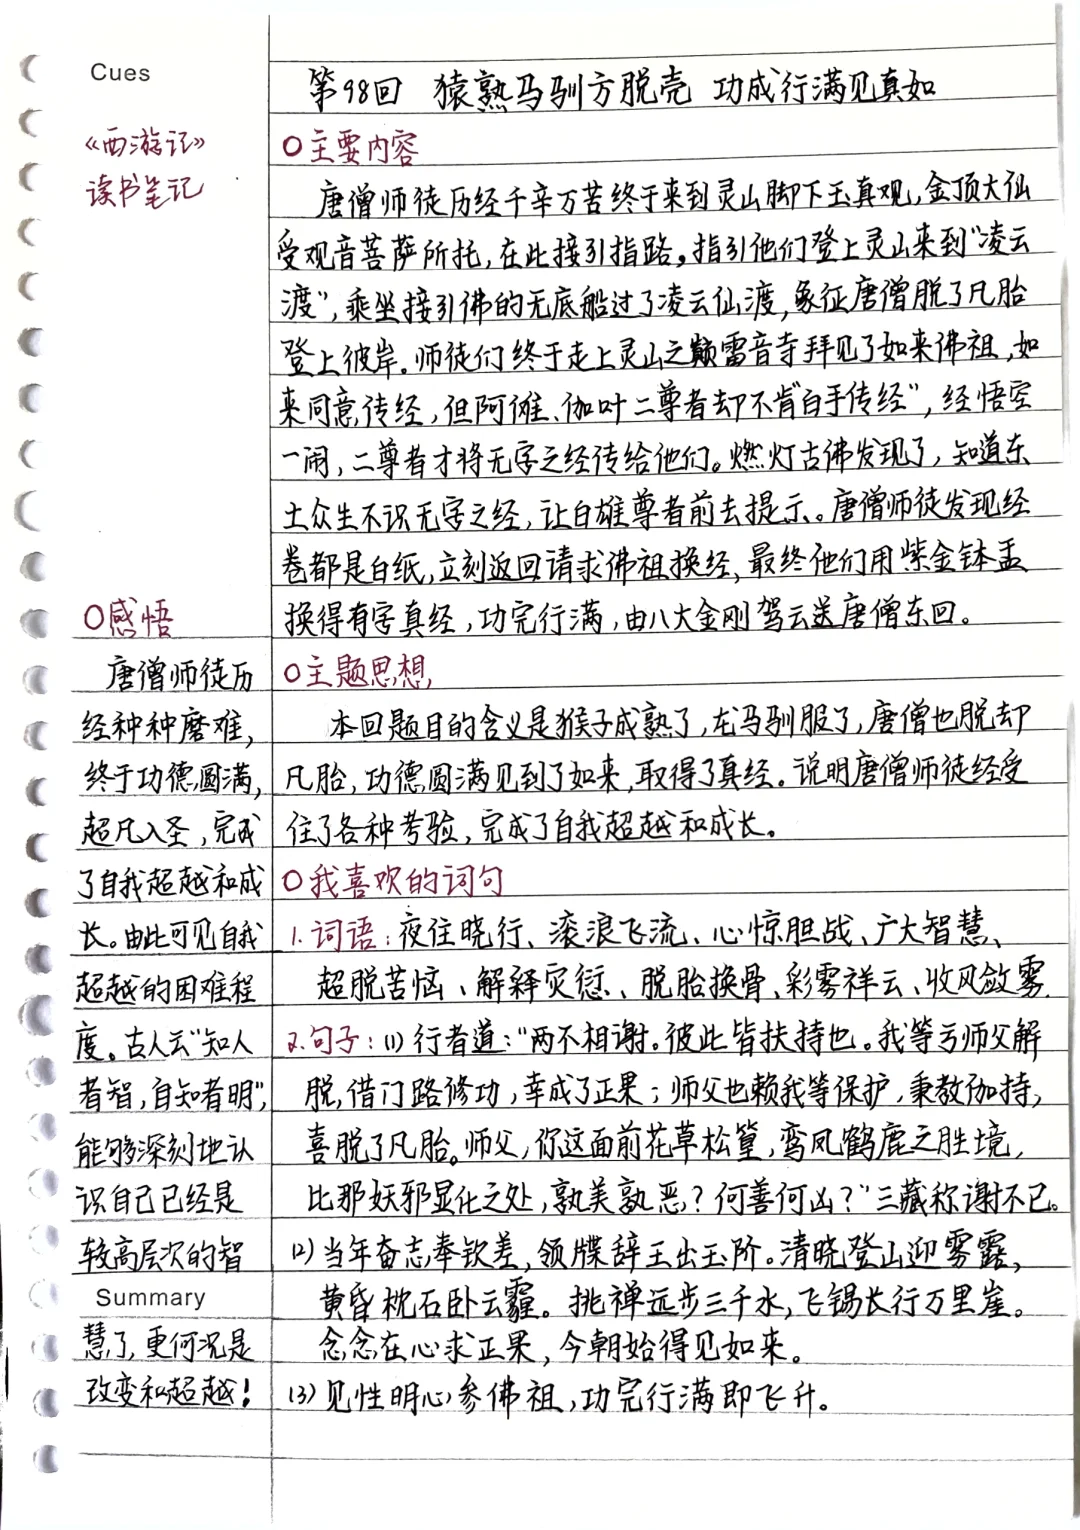 Cues
《西游记》
读书笔记
○感悟
唐僧师徒历
经种种磨难,
终于功德圆满,
超凡入圣,完成
了自我超越和成
长。由此可见自我
超越的困难程
度。古人云"知人
者智,自知者明",
能够深刻地认
识自己已经是
较高层次的智
Summary
慧了,更何况是
改变和超越!
第98回 猿熟马驯方脱壳 功成行满见真如
○主要内容
唐僧师徒历经千辛万苦终于来到灵山脚下玉真观,金顶大仙
受观音菩萨所托,在此接引指路。指引他们登上灵山来到"凌云
渡",乘坐接引佛的无底船过了凌云仙渡,象征唐僧脱了凡胎
登上彼岸。师徒们终于走上灵山之巅雷音寺拜见了如来佛祖,如
来同意传经,但阿傩、伽叶二尊者却不肯"白手传经",经悟空
一闹,二尊者才将无字之经传给他们。燃灯古佛发现了,知道东
土众生不识无字之经,让白雄尊者前去提示。唐僧师徒发现经
卷都是白纸,立刻返回请求佛祖换经,最终他们用紫金钵盂
换得有字真经,功完行满,由八大金刚驾云送唐僧东回。
○主题思想
本回题目的含义是猴子成熟了,龙马驯服了,唐僧也脱却
凡胎,功德圆满见到了如来,取得了真经。说明唐僧师徒经受
住了各种考验,完成了自我超越和成长。
○我喜欢的词句
1.词语:夜住晓行、滚浪飞流、心惊胆战、广大智慧、
超脱苦恼、解释灾愆、脱胎换骨、彩雾祥云、收风敛雾.
2.句子:(1)行者道:"两不相谢。彼此皆扶持也。我等亏师父解
脱,借门路修功,幸成了正果;师父也赖我等保护,秉教伽持,
喜脱了凡胎。师父,你这面前花草松篁,鸾凤鹤鹿之胜境,
比那妖邪显化之处,孰美孰恶?何善何凶?"三藏称谢不已。
(2)当年奋志奉钦差,领牒辞王出玉阶。清晓登山迎雾露,
黄昏枕石卧云霾。挑禅远步三千水,飞锡长行万里崖。
念念在心求正果,今朝始得见如来。
(3)见性明心参佛祖,功完行满即飞升。